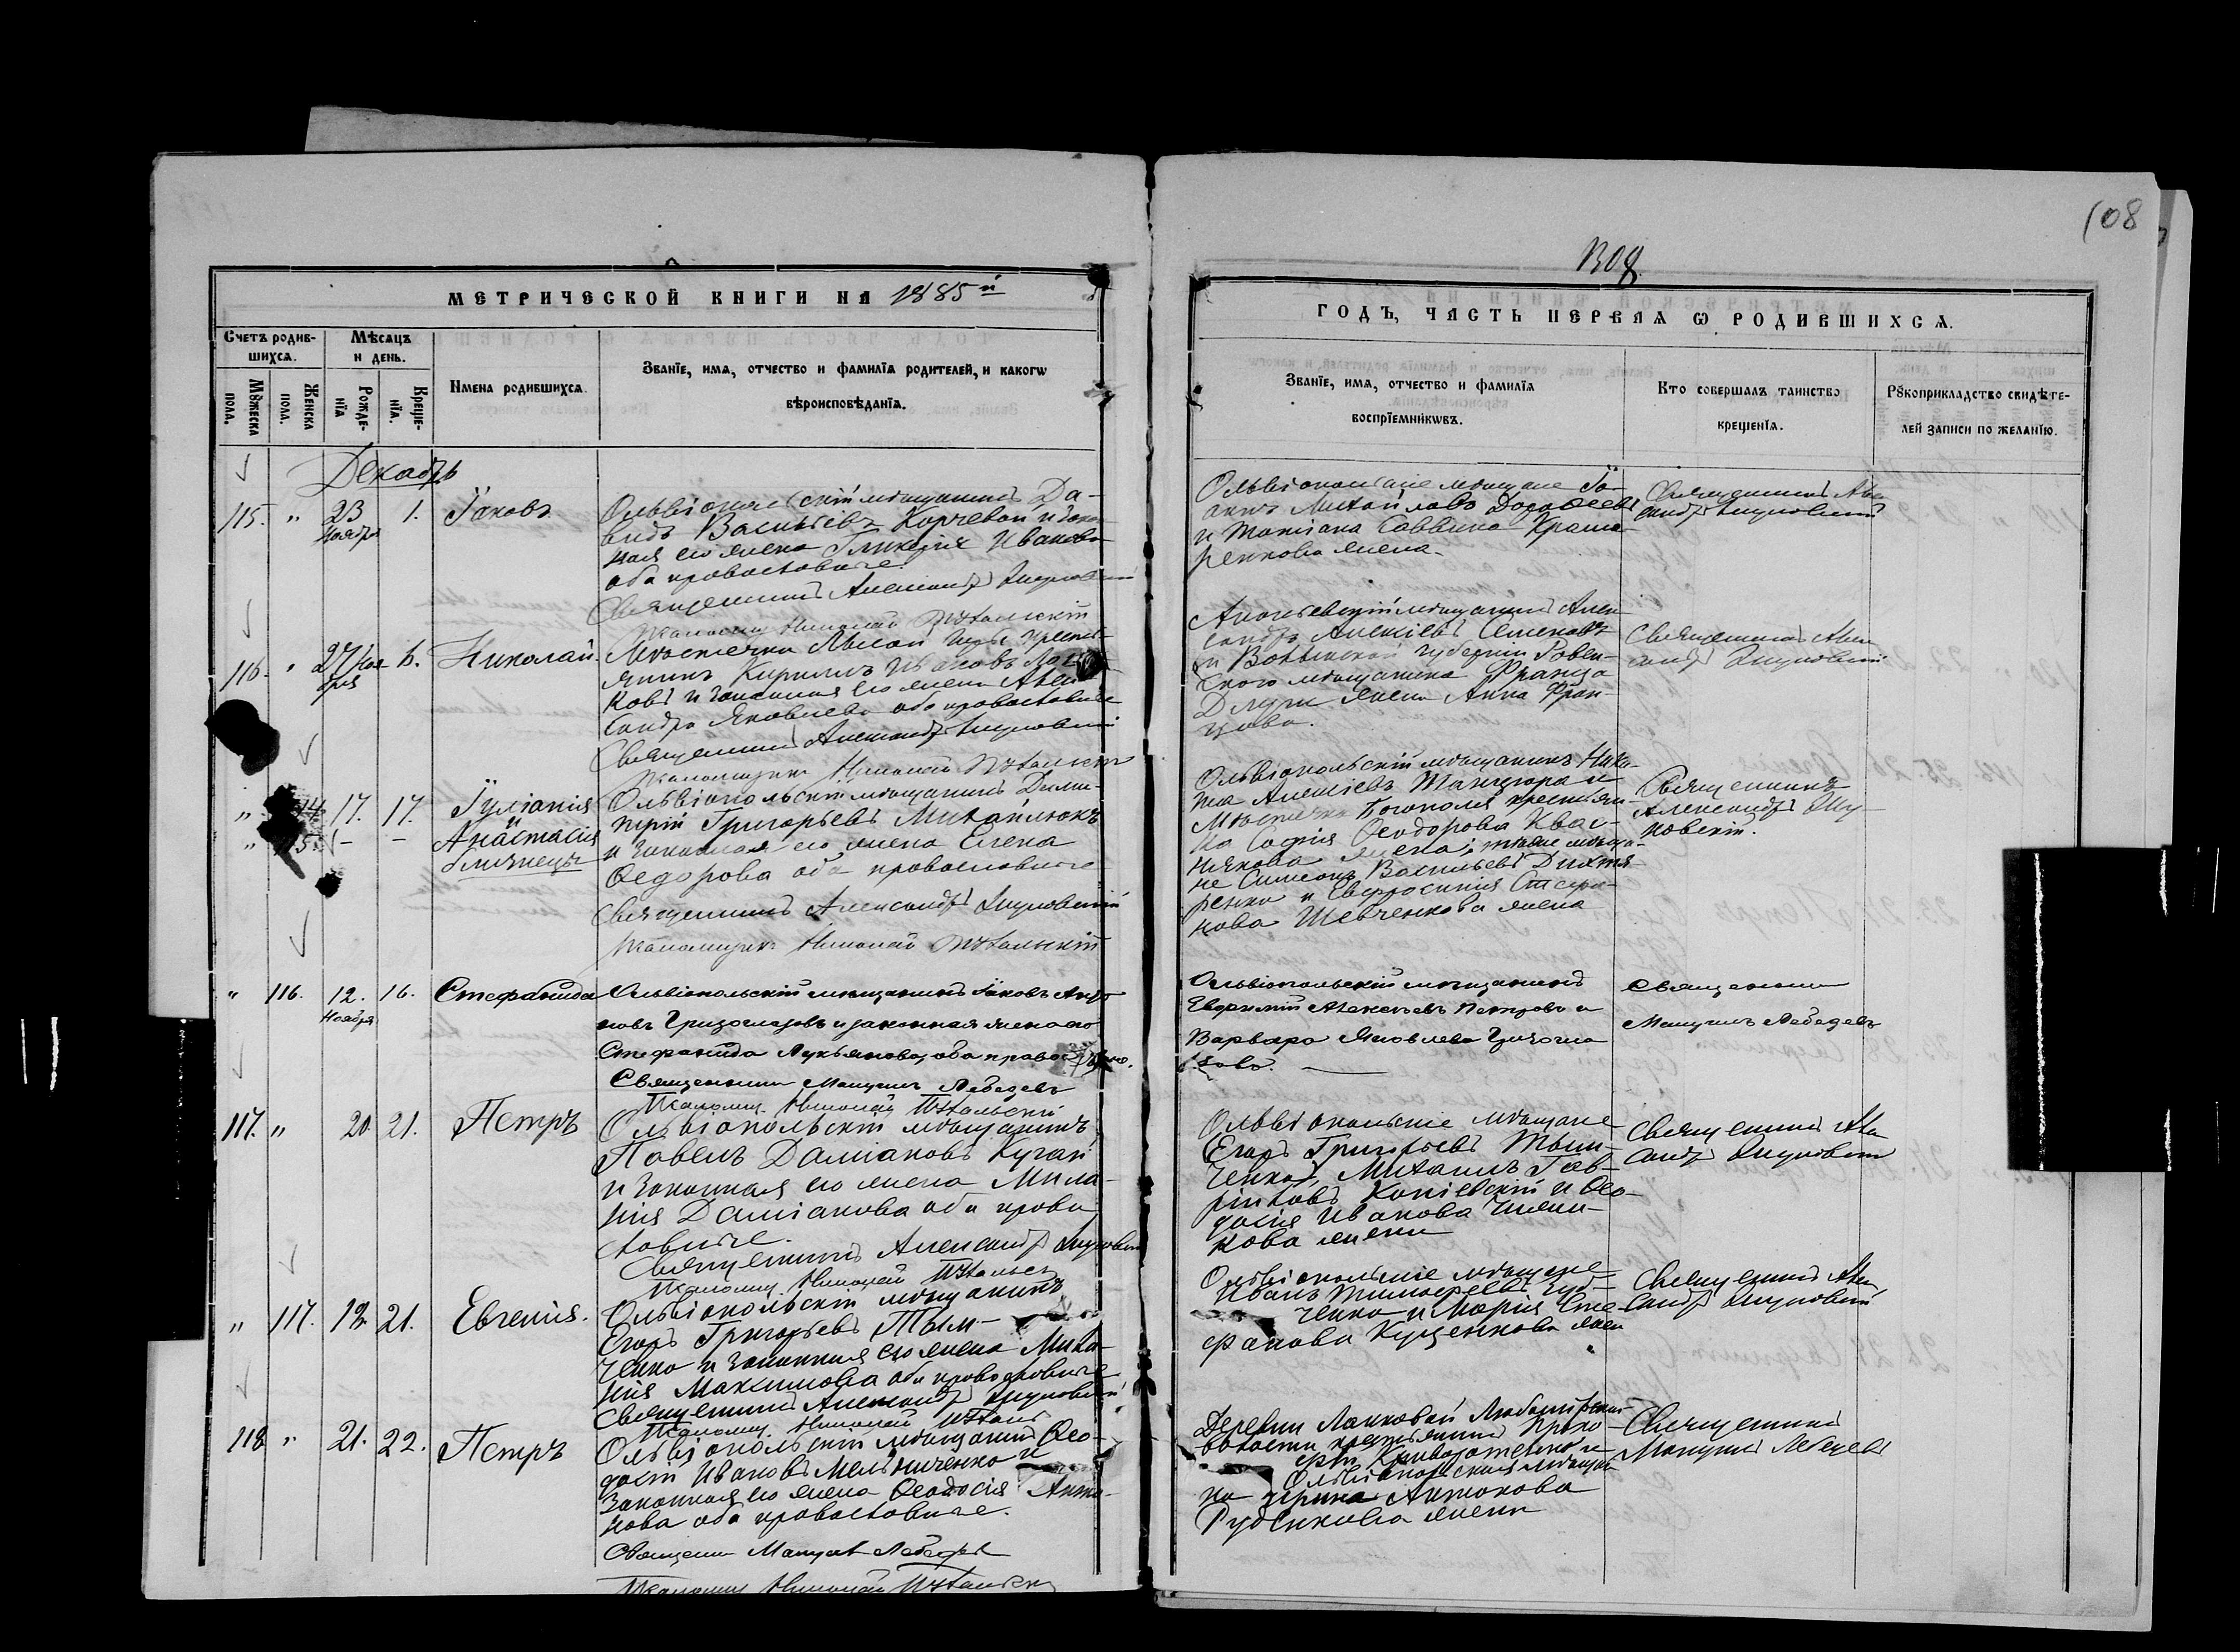 108
1308
МЕТРИЧЕСКОЙ КНИГИ НА 1885й
Счетъ родившихсѧ.
Мѣсѧцъ и день.
Имена родившихсѧ.
Званїе, имѧ, отчество и фамилїѧ родителей, и какогѡ
вѣроисповѣданїѧ.
Мꙋжеска пола.
Женска пола.
Рожденїѧ
Крещенїѧ.
Декабрь
115. " 23 Ноября 1. Іаковъ
Ольвіопольскій мѣщанинъ Да-
видъ Васильевъ Корчевой и закон
ная его жена Гликерія Иванова
оба православные.
Священникъ Александръ
Псаломщикъ Николай
116. " 27 Ноября 6. Николай.
Мѣстечка Лысой Горы крестья
янинъ Кириллъ Ивановъ
ковъ и законная его жена Алек
сандра Яковлева оба православные
Священникъ Александръ
Псаломщикъ Николай
" 114 17. 17. Іуліанія
и
" 115 - - Анастасія
близнецы
Ольвіопольскій мѣщанинъ Дими-
трій Григорьевъ Михайлюкъ
и законная его жена Елена
Ѳедорова оба православные
Священникъ Александръ
Псаломщикъ Николай
" 116. 12. Ноября 16. Стефанида
Ольвіопольскій мѣщанинъ Іаковъ
новъ Гризоглазовъ и законная жена его
Стефанида Лукьянова, оба православно.
Священникъ Мануилъ Лебедевъ
Псаломщ. Николай
117. " 20 21. Петръ
Ольвіопольскій мѣщанинъ
Павелъ Даміановъ Кучай
и законная его жена Мила-
нія Даміанова оба право
славные.
Священникъ Александръ
Псаломщ. Николай
" 117. 19. 21. Евгенія.
Ольвіопольскій мѣщанинъ
Егоръ Григорьевъ Тым-
ченко и законная его жена
нія Максимова оба православные
Священникъ Александръ
Псаломщ. Николай
118 " 21. 22. Петръ
Ольвіопольскій мѣщанинъ Ѳео-
досій Ивановъ Мельниченко и
законная его жена Ѳеодосія Анто-
нова оба православные.
Священникъ Мануилъ Лебедевъ
Псаломщ. Николай
ГОДЪ, ЧАСТЬ ПЕРВАѦ Ѡ РОДИВШИХСѦ.
Званїе, имѧ, отчество и фамилїѧ
воспрїемникѡвъ.
Кто совершалъ таинство
крещенїѧ.
Рꙋкоприкладство свидѣте-
лей записи по желанїю.
Ольвіопольскіе мѣщане Іо-
аннъ Михайловъ Дороѳеевъ
и Татіана Саввина Крама
ренкова жена.
Священникъ Алек
сандръ
Ананьевскій мѣщанинъ Алек
сандръ Алексіевъ Семеновъ
и Волынской губерніи Ровен-
ского мѣщанина Франца
жена Анна Фран-
цова.
Священникъ Алек
сандръ
Ольвіопольскій мѣщанинъ Ники-
та Алексіевъ Танцюра и
Мѣстечка Богополя крестьян-
ка Софія Ѳеодорова Квас-
никова жена; также мѣща-
не Симеонъ Васильевъ Дихтя-
ренко и Евфросинія Стефа-
нова Шевченкова жена
Священникъ
Александръ
Ольвіопольскій мѣщанинъ
Евфимій Алексѣевъ Петровъ и
Варвара Яковлева Гризогла
зова.
Священникъ
Мануилъ Лебедевъ
Ольвіопольскіе мѣщане
Егоръ Григорьевъ Тым-
ченко, Михаилъ Гав-
ріиловъ Копіевскій и Ѳео-
досія Иванова
кова жена
Священникъ Алек
сандръ
Ольвіопольскіе мѣщане
Иванъ Тимоѳеевъ
ченко и Марія Сте-
фанова Куценкова жена
Священникъ Алек
сандръ
Деревни Лапковой Любомирской
волости крестьянинъ Проко-
фій и
Ольвіопольская мѣщан
ка Ирина Антонова
Руденкова жена
Священникъ
Мануилъ Лебедевъ